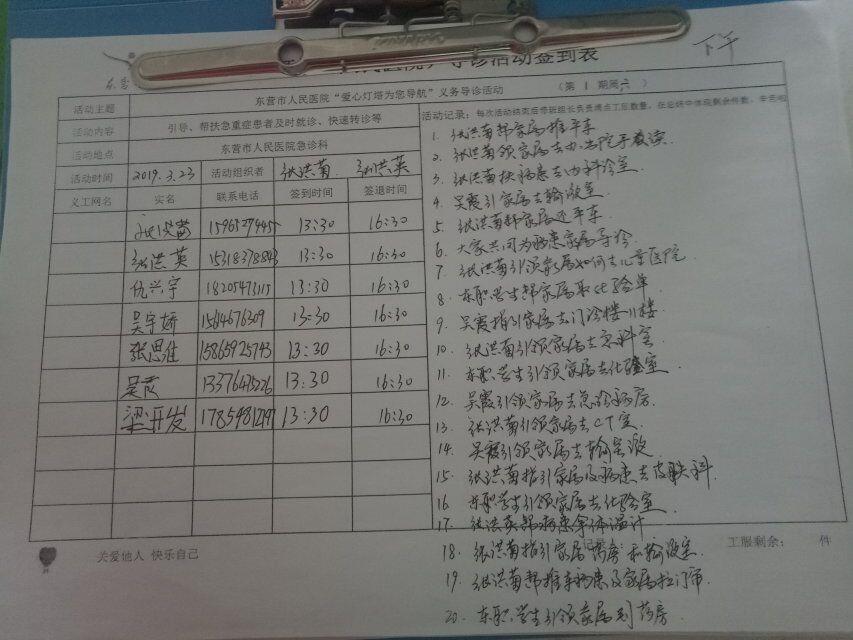 导诊活动签到表
下午
活动主题 东营市人民医院“爱心灯塔为您导航”义务导诊活动 （第 1 期周六 ）
活动内容 引导、帮扶急重症患者及时就诊、快速转诊等
活动地点 东营市人民医院急诊科
活动时间 2019.3.23 活动组织者 张洪菊 张洪英
义工网名 实名 联系电话 签到时间 签退时间
张洪菊 13:30 16:30
张洪英 13:30 16:30
仇兴宇 18205473115 13:30 16:30
吴宇娇 13:30 16:30
张思维 15865925743 13:30 16:30
吴霞 13376475226 13:30 16:30
梁开发 13:30 16:30
活动记录：每次活动结束后带班组长负责清点工服数量，在总结中体现剩余件数，辛苦啦
1. 张洪菊帮家属推平车
2. 张洪菊领家属去办出院手续
3. 张洪菊扶病患去内科诊室
4. 吴霞引家属去输液室
5. 张洪菊帮家属还平车
6. 大家共同为病患家属导诊
7. 张洪菊引领家属如何去儿童医院
8. 东职学生帮家属取化验单
9. 吴霞指引家属去门诊楼11楼
10. 张洪菊引领家属去急科室
11. 东职学生引领家属去化验室
12. 吴霞引领家属去急诊病房
13. 张洪菊引领家属去CT室
14. 吴霞引领家属去输液
15. 张洪菊指引家属及病患去皮肤科
16. 东职学生引领家属去化验室
17. 张洪英帮病患拿体温计
18. 张洪菊指引家属药房和输液室
19. 张洪菊帮推车病患及家属拉门帘
20. 东职学生引领家属到药房
关爱他人 快乐自己 工服剩余： 件